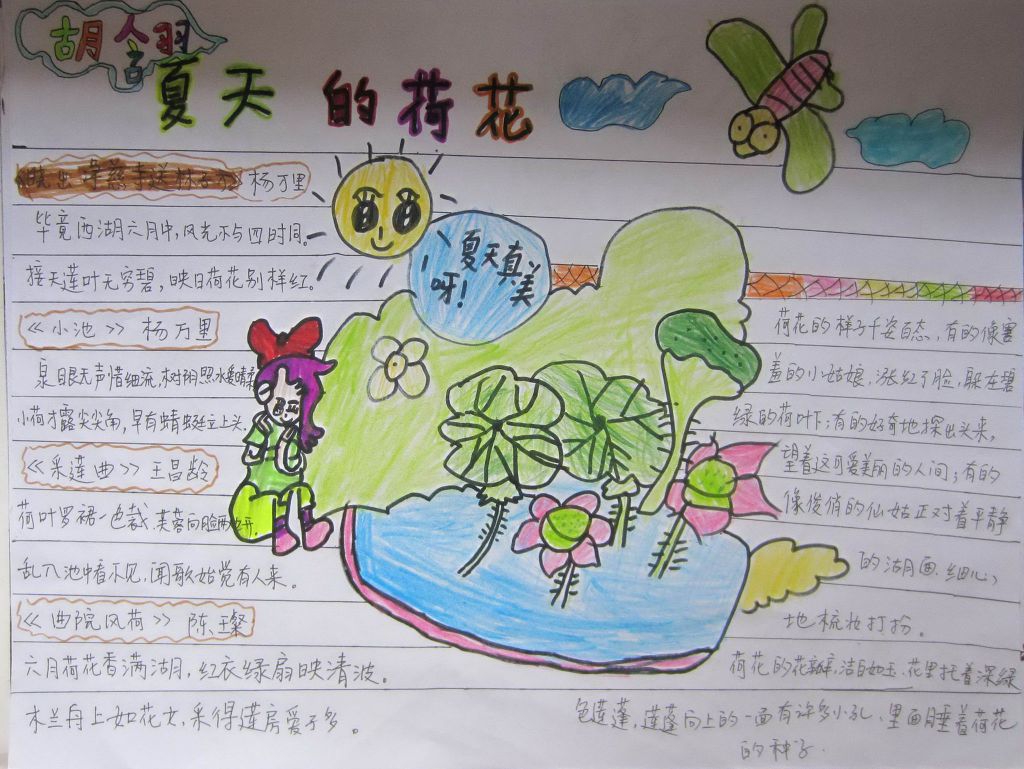 胡人習
夏天的荷花
杨万里
毕竟西湖六月中,风光不与四时同。
接天莲叶无穷碧,映日荷花别样红。
《小池》 杨万里
泉眼无声惜细流,树阴照水爱晴柔
小荷才露尖尖角,早有蜻蜓立上头.
《采莲曲》 王昌龄
荷叶罗裙一色裁 芙蓉向脸两边开.
乱入池中看不见,闻歌始觉有人来。
《曲院风荷》 陈王璨
六月荷花香满湖,红衣绿扇映清波。
木兰舟上如花女,采得莲房爱子多。
夏天真美
呀!
荷花的样子千姿百态,有的像害
羞的小姑娘,涨红了脸,躲在碧
绿的荷叶下;有的好奇地探出头来,
望着这可爱美丽的人间;有的
像俊俏的仙姑正对着平静
的湖面,细心
地梳妆打扮。
荷花的花瓣,洁白如玉、花里托着深绿
色莲蓬,莲蓬向上的一面有许多小孔、里面睡着荷花
的种子.